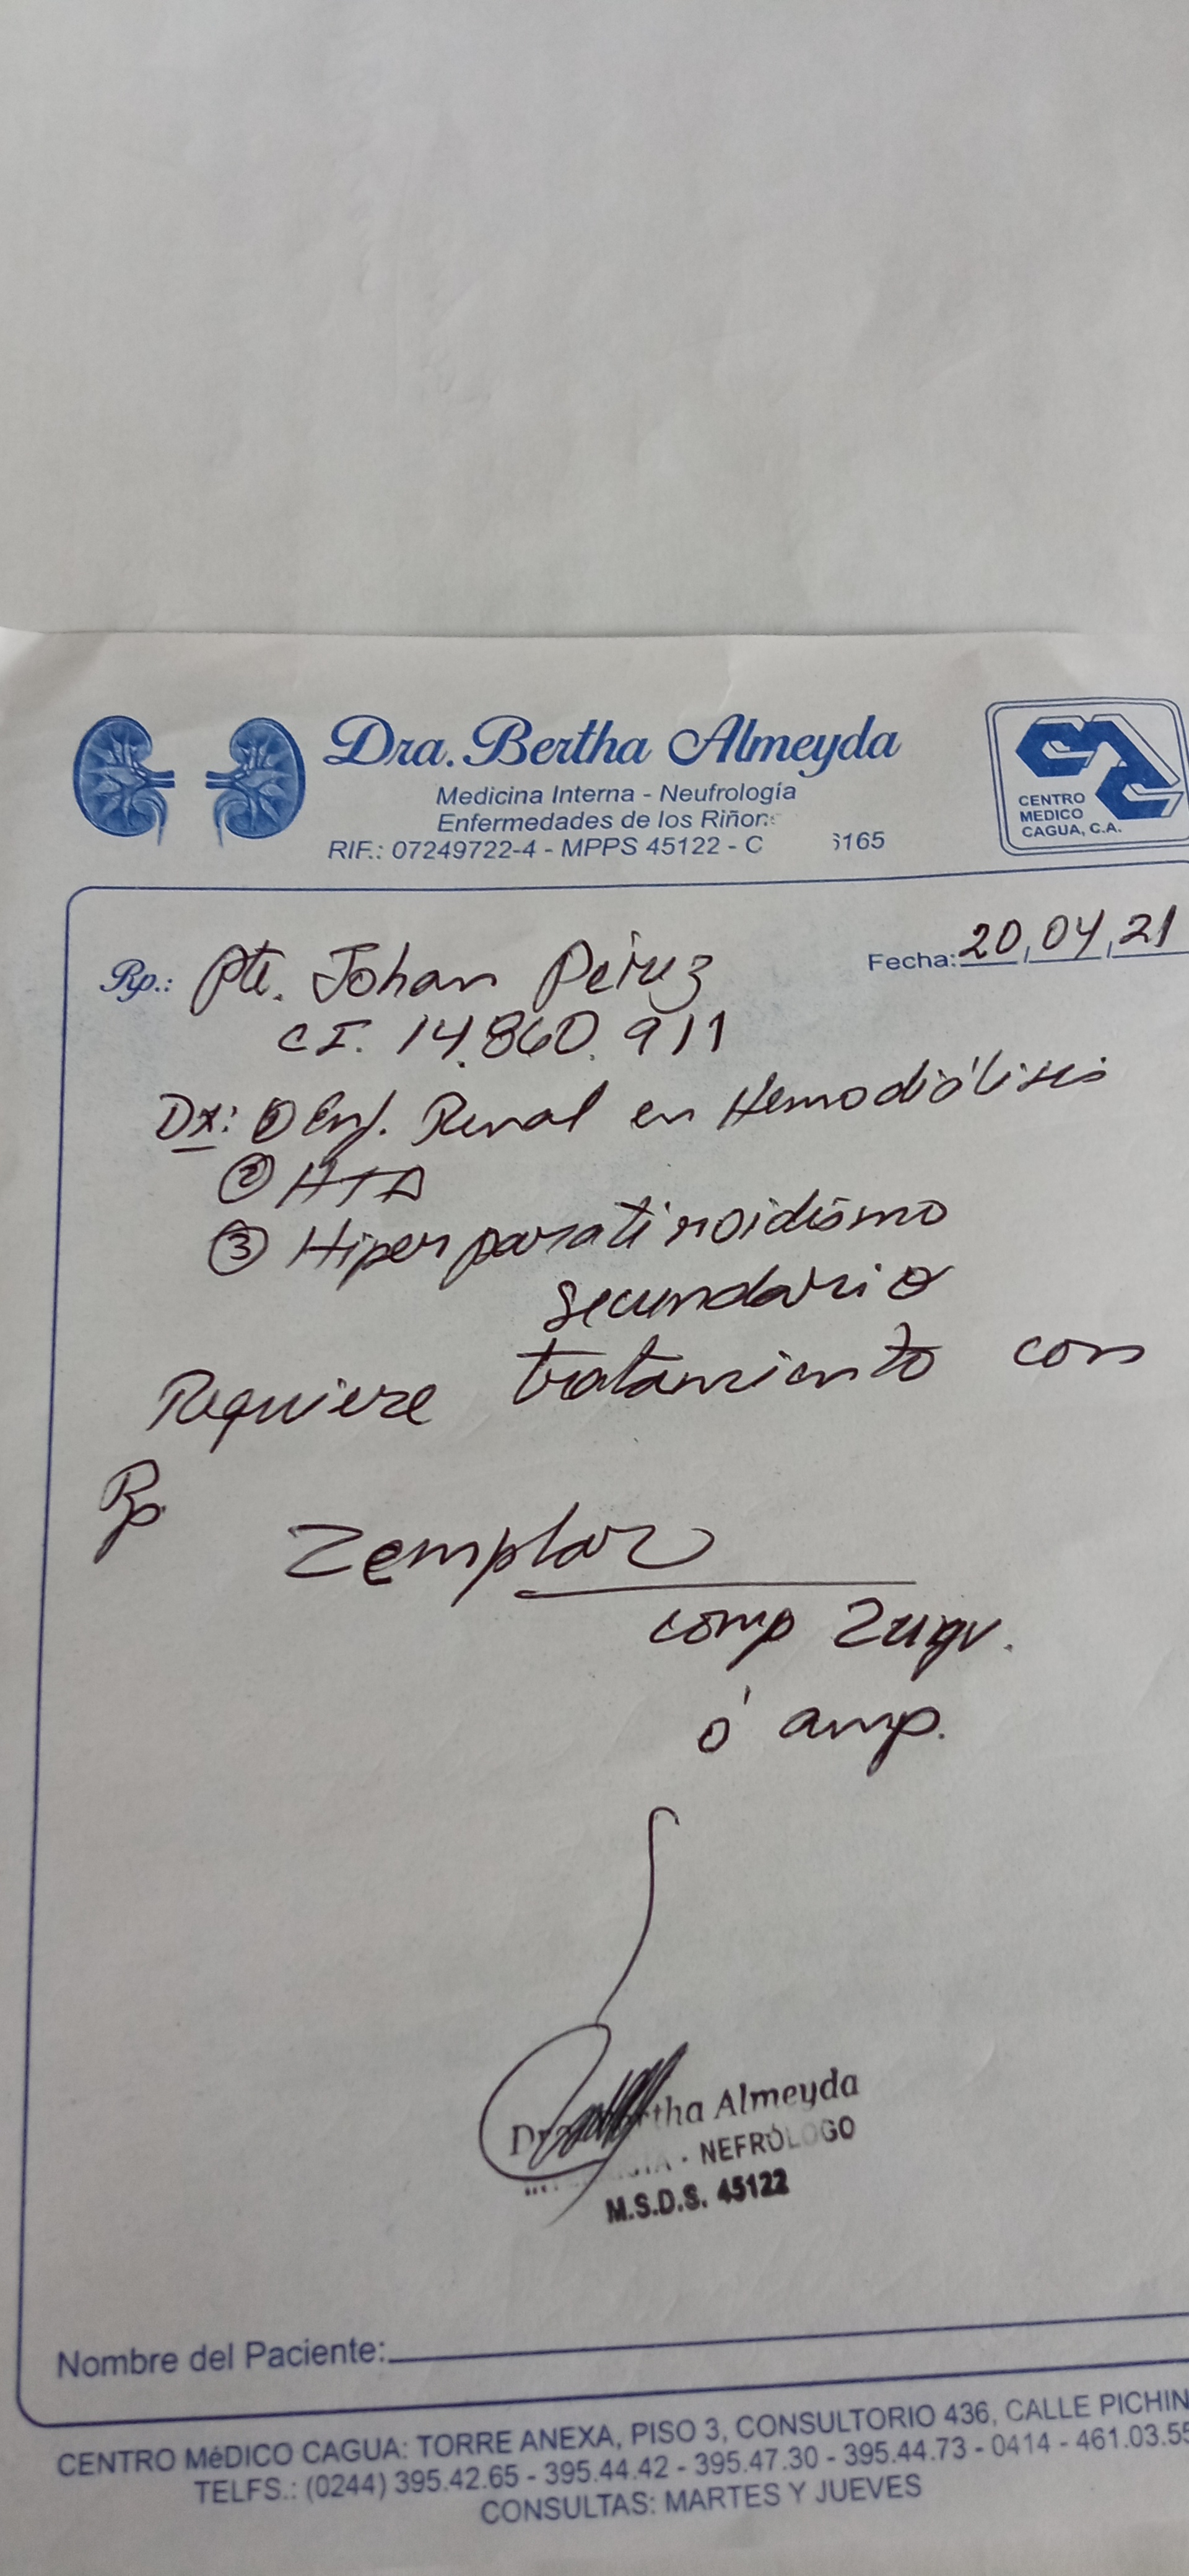 Dra. Bertha Almeyda
Medicina Interna - Neufrología
Enfermedades de los Riñon
RIF.: 07249722-4 - MPPS 45122 - C 6165
CENTRO
MEDICO
CAGUA, C.A.
Rp.: Pte. Johan Pérez
Fecha: 20,04,21
CI. 14.860.911
Dx: ① Enf. Renal en Hemodiálisis
② HTA
③ Hiperparatiroidismo
secundario
Requiere tratamiento con
Rp
Zemplar
comp 2ugr.
ó amp.
Dra. Bertha Almeyda
NEFRÓLOGO
M.S.D.S. 45122
Nombre del Paciente:
CENTRO MéDICO CAGUA: TORRE ANEXA, PISO 3, CONSULTORIO 436, CALLE PICHIN
TELFS.: (0244) 395.42.65 - 395.44.42 - 395.47.30 - 395.44.73 - 0414 - 461.03.55
CONSULTAS: MARTES Y JUEVES